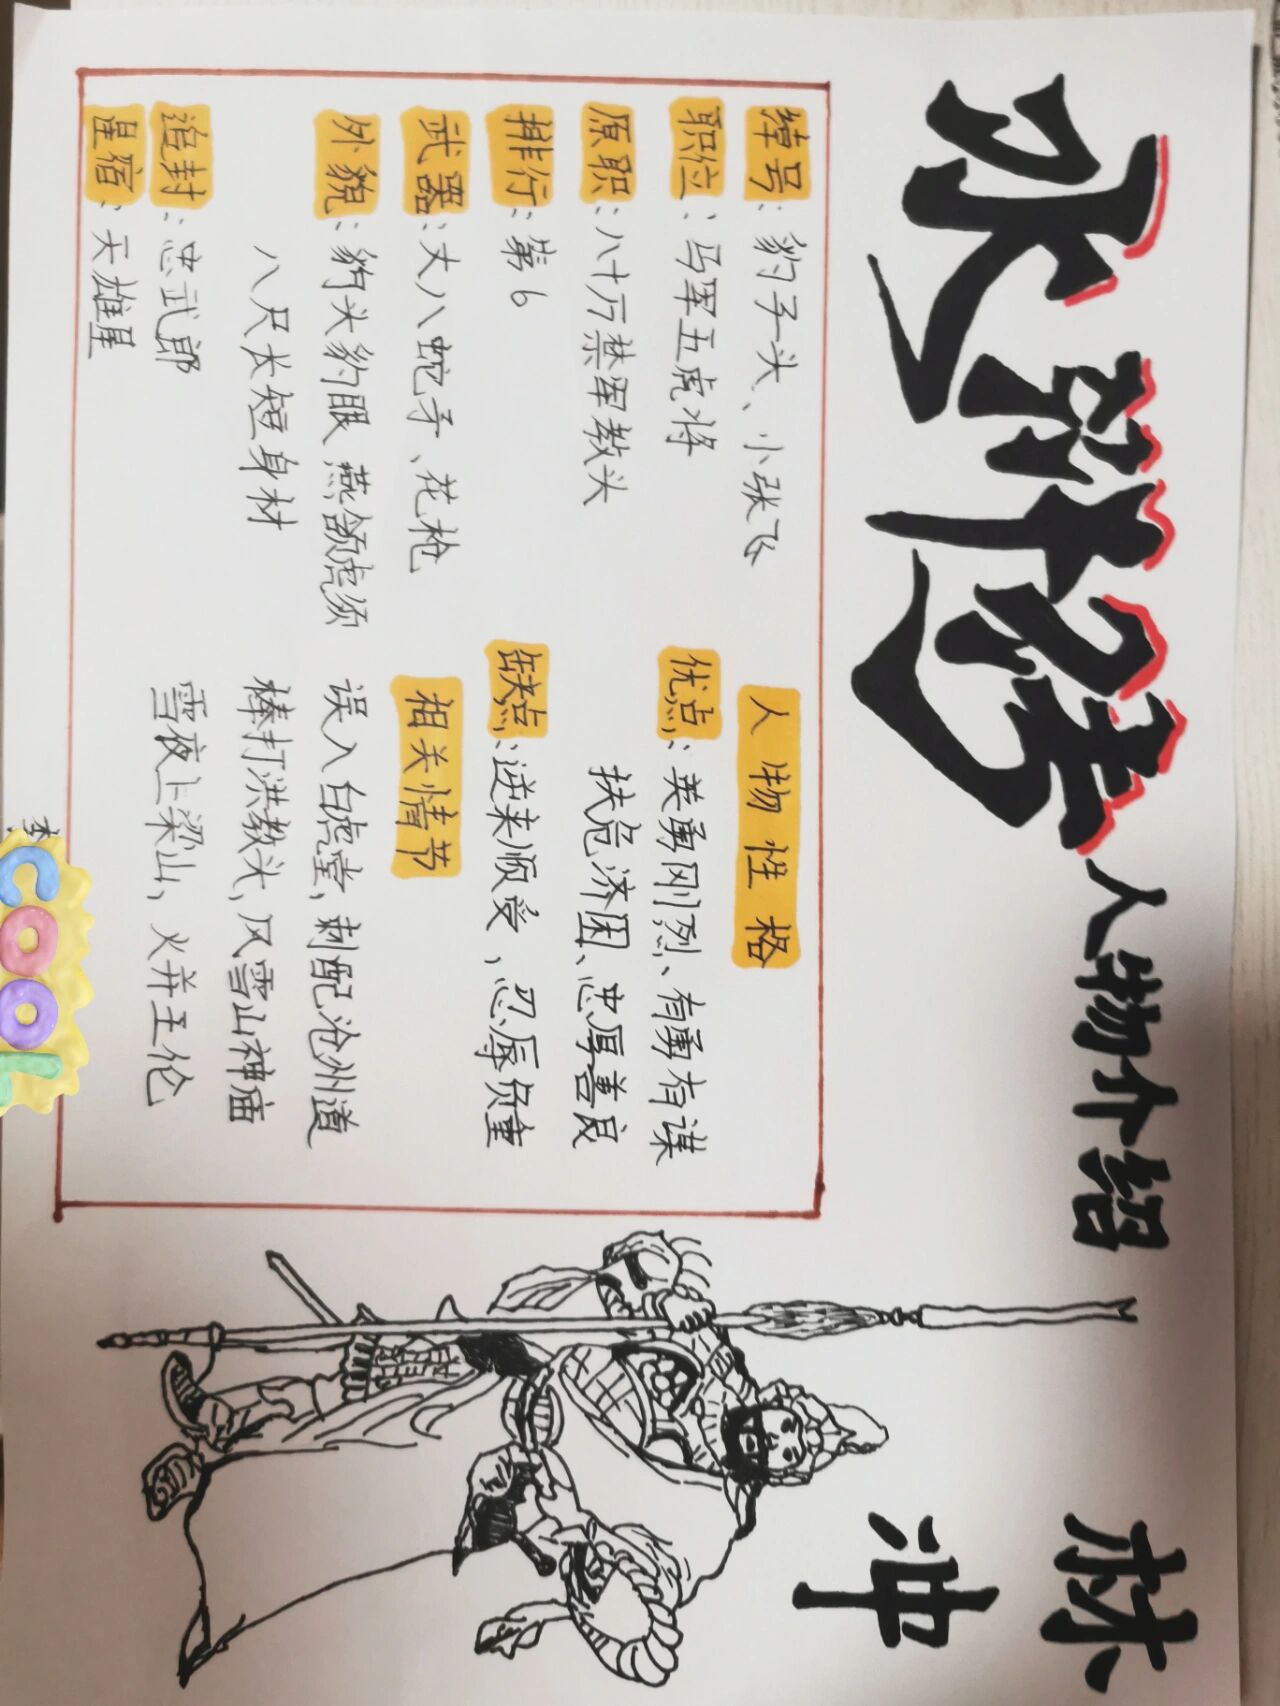 水浒传人物介绍
林冲
绰号：豹子头、小张飞
职位：马军五虎将
原职：八十万禁军教头
排行：第6
武器：丈八蛇矛、花枪
外貌：豹头豹眼 燕颌虎须
八尺长短身材
追封：忠武郎
星宿：天雄星
人物性格
优点：英勇刚烈、有勇有谋
扶危济困、忠厚善良
缺点：逆来顺受，忍辱负重
相关情节
误入白虎堂，刺配沧州道
棒打洪教头，风雪山神庙
雪夜上梁山，火并王伦
COOL